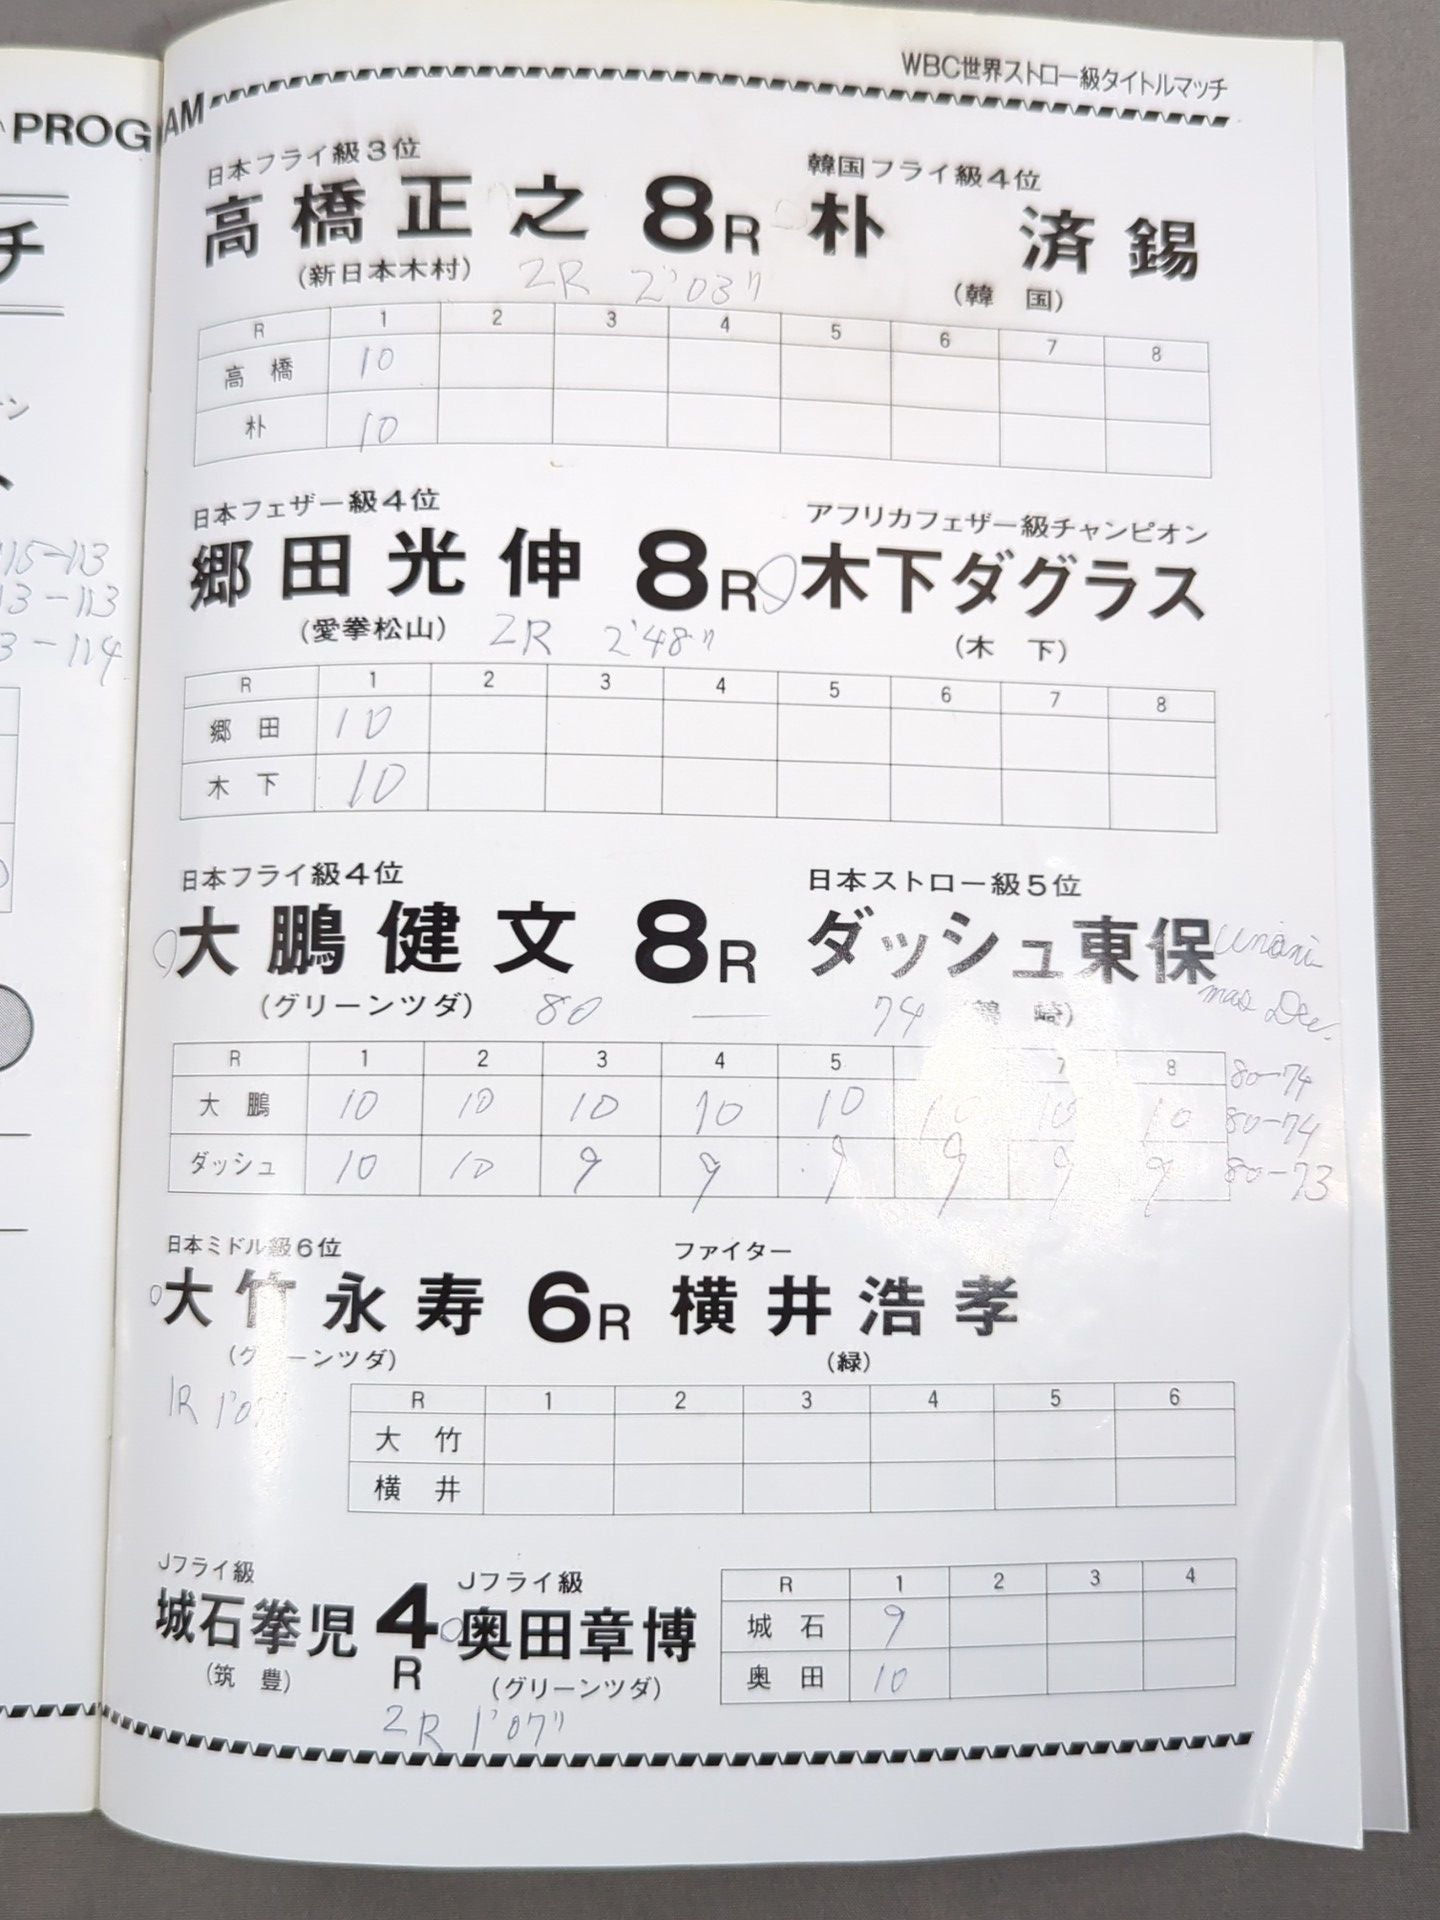 PROGRAM
WBC世界ストロー級タイトルマッチ
チ
115-113
113-113
3-114
日本フライ級3位
韓国フライ級4位
高橋正之 8R 朴 済錫
(新日本木村)
(韓 国)
2R 2'03"
R 1 2 3 4 5 6 7 8
高橋 10
朴 10
日本フェザー級4位
アフリカフェザー級チャンピオン
郷田光伸 8R 木下ダグラス
(愛拳松山)
(木 下)
2R 2'48"
R 1 2 3 4 5 6 7 8
郷田 10
木下 10
日本フライ級4位
日本ストロー級5位
大鵬健文 8R ダッシュ東保
Unani
mas Dec.
(グリーンツダ)
80 — 74
R 1 2 3 4 5 7 8
大鵬 10 10 10 10 10 10 10 10
ダッシュ 10 10 9 9 9 9 9 9
80-74
80-74
80-73
日本ミドル級6位
ファイター
大竹永寿 6R 横井浩孝
(グリーンツダ)
(緑)
1R
R 1 2 3 4 5 6
大竹
横井
Jフライ級
Jフライ級
城石拳児 4R 奥田章博
(筑 豊)
(グリーンツダ)
2R 1'07"
R 1 2 3 4
城石 9
奥田 10